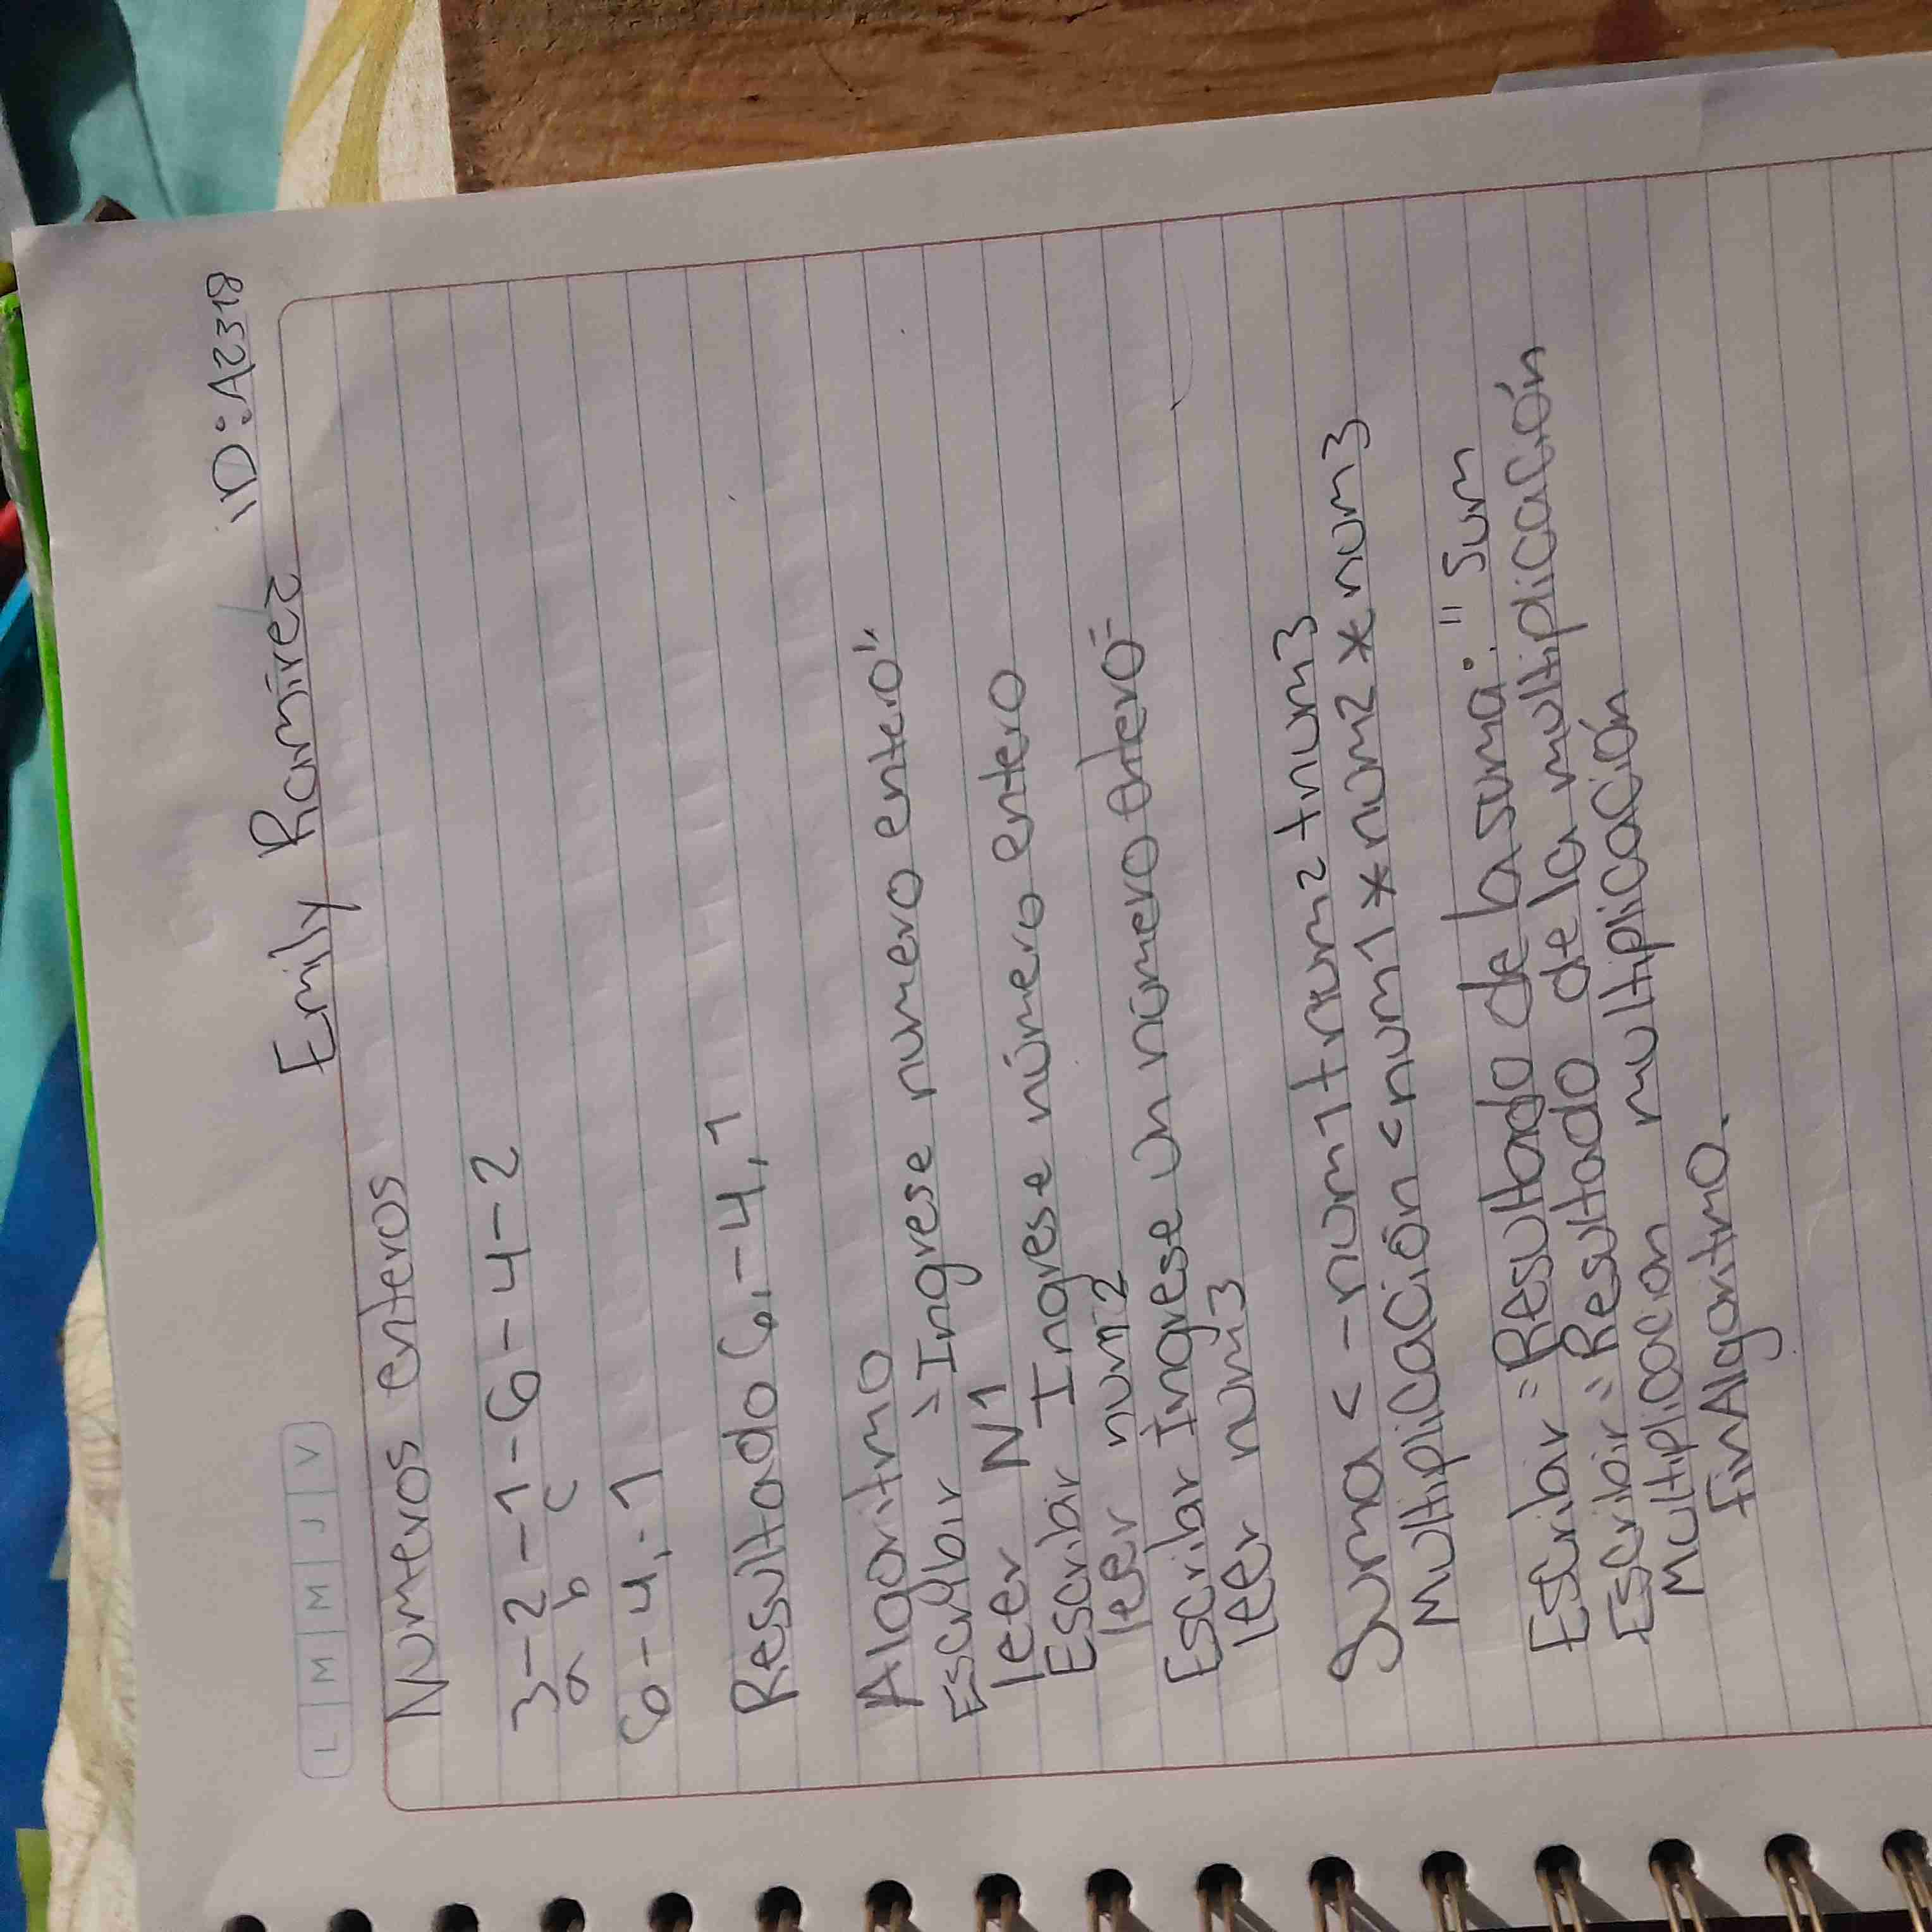 Emily Ramirez ID: A2318
L M M J V
Numeros enteros
3-2-1-6-4-2
a b c
6-4,-1
Resultado 6,-4,1
Algoritmo
Escribir "Ingrese numero entero"
leer N1
Escribir Ingrese número entero
leer num2
Escribir Ingrese un número entero"
leer num3
Suma <-num1+num2+num3
Multiplicación <num1*num2*num3
Escribir "Resultado de la suma:" Sum
Escribir "Resultado de la multiplicación
Multiplicacion multiplicación
FinAlgoritmo.